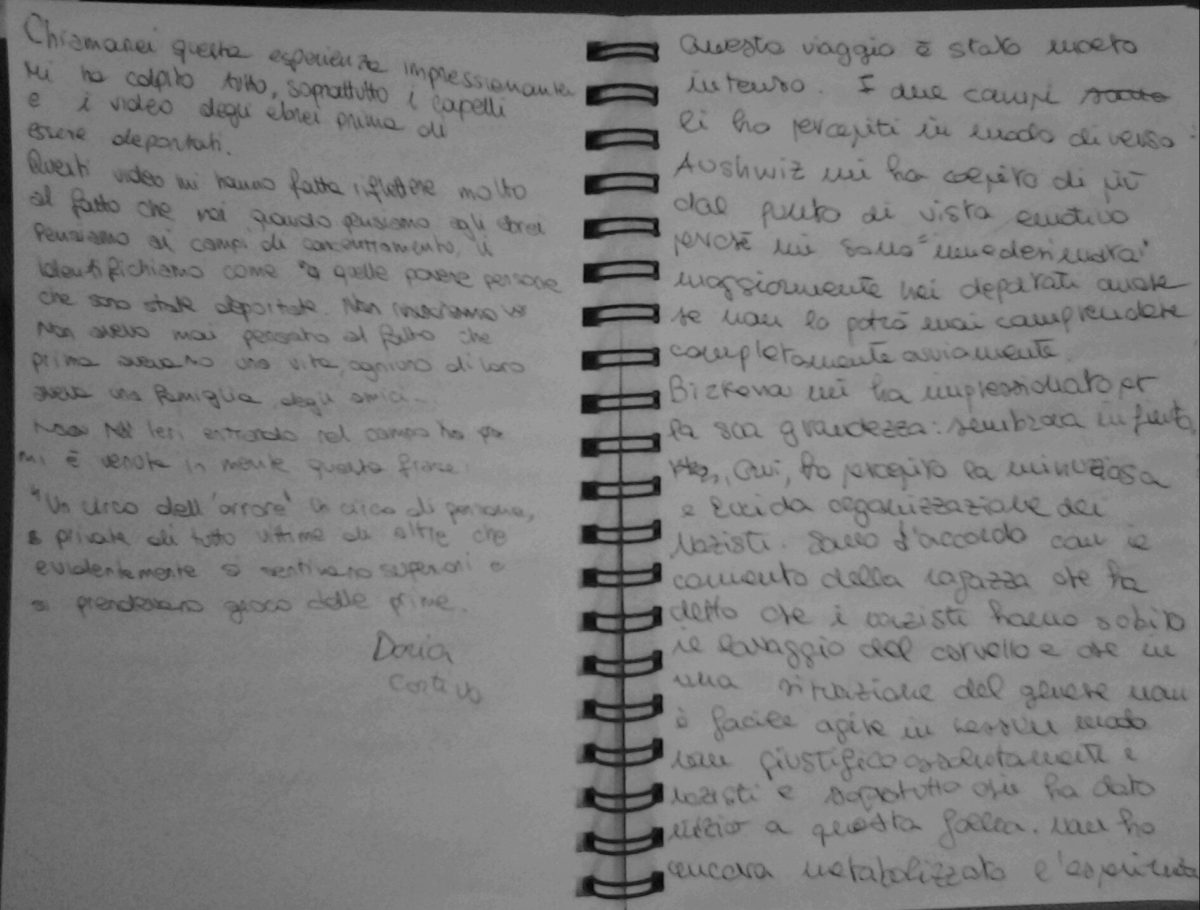 Chiamarei questa esperienza impressionante.
Mi ha colpito tutto, soprattutto i capelli
e i video degli ebrei prima di
essere deportati.
Questi video mi hanno fatta riflettere molto
al fatto che noi quando pensiamo agli ebrei
pensiamo ai campi di concentramento, li
identifichiamo come a quelle povere persone
che sono state deportate. Non
Non avevo mai pensato al fatto che
prima avevano una vita, ogniuno di loro
aveva una famiglia, degli amici...
Ieri entrando nel campo ho
mi è venuta in mente questa frase:
"Un circo dell'orrore" Un circo di persone,
private di tutto vittime di altre che
evidentemente si sentivano superiori e
si prendevano gioco delle prime.
Daria
Questo viaggio è stato molto
intenso. I due campi sono
li ho percepiti in modo diverso:
Aushwiz mi ha colpito di più
dal punto di vista emotivo
perché mi sono "immedesimata"
maggiormente nei deportati anche
se non lo potrò mai comprendere
completamente ovviamente.
Birkenau mi ha impressionato per
la sua grandezza: sembrava infinito,
Qui, ho percepito la minuziosa
e lucida organizzazione dei
nazisti. Sono d'accordo con il
commento della ragazza che ha
detto che i nazisti hanno subito
il lavaggio del cervello e che in
una situazione del genere non
è facile agire in nessun modo
non giustifico assolutamente i
nazisti e soprattutto chi ha dato
inizio a questa follia. Non ho
ancora metabolizzato l'esperienza